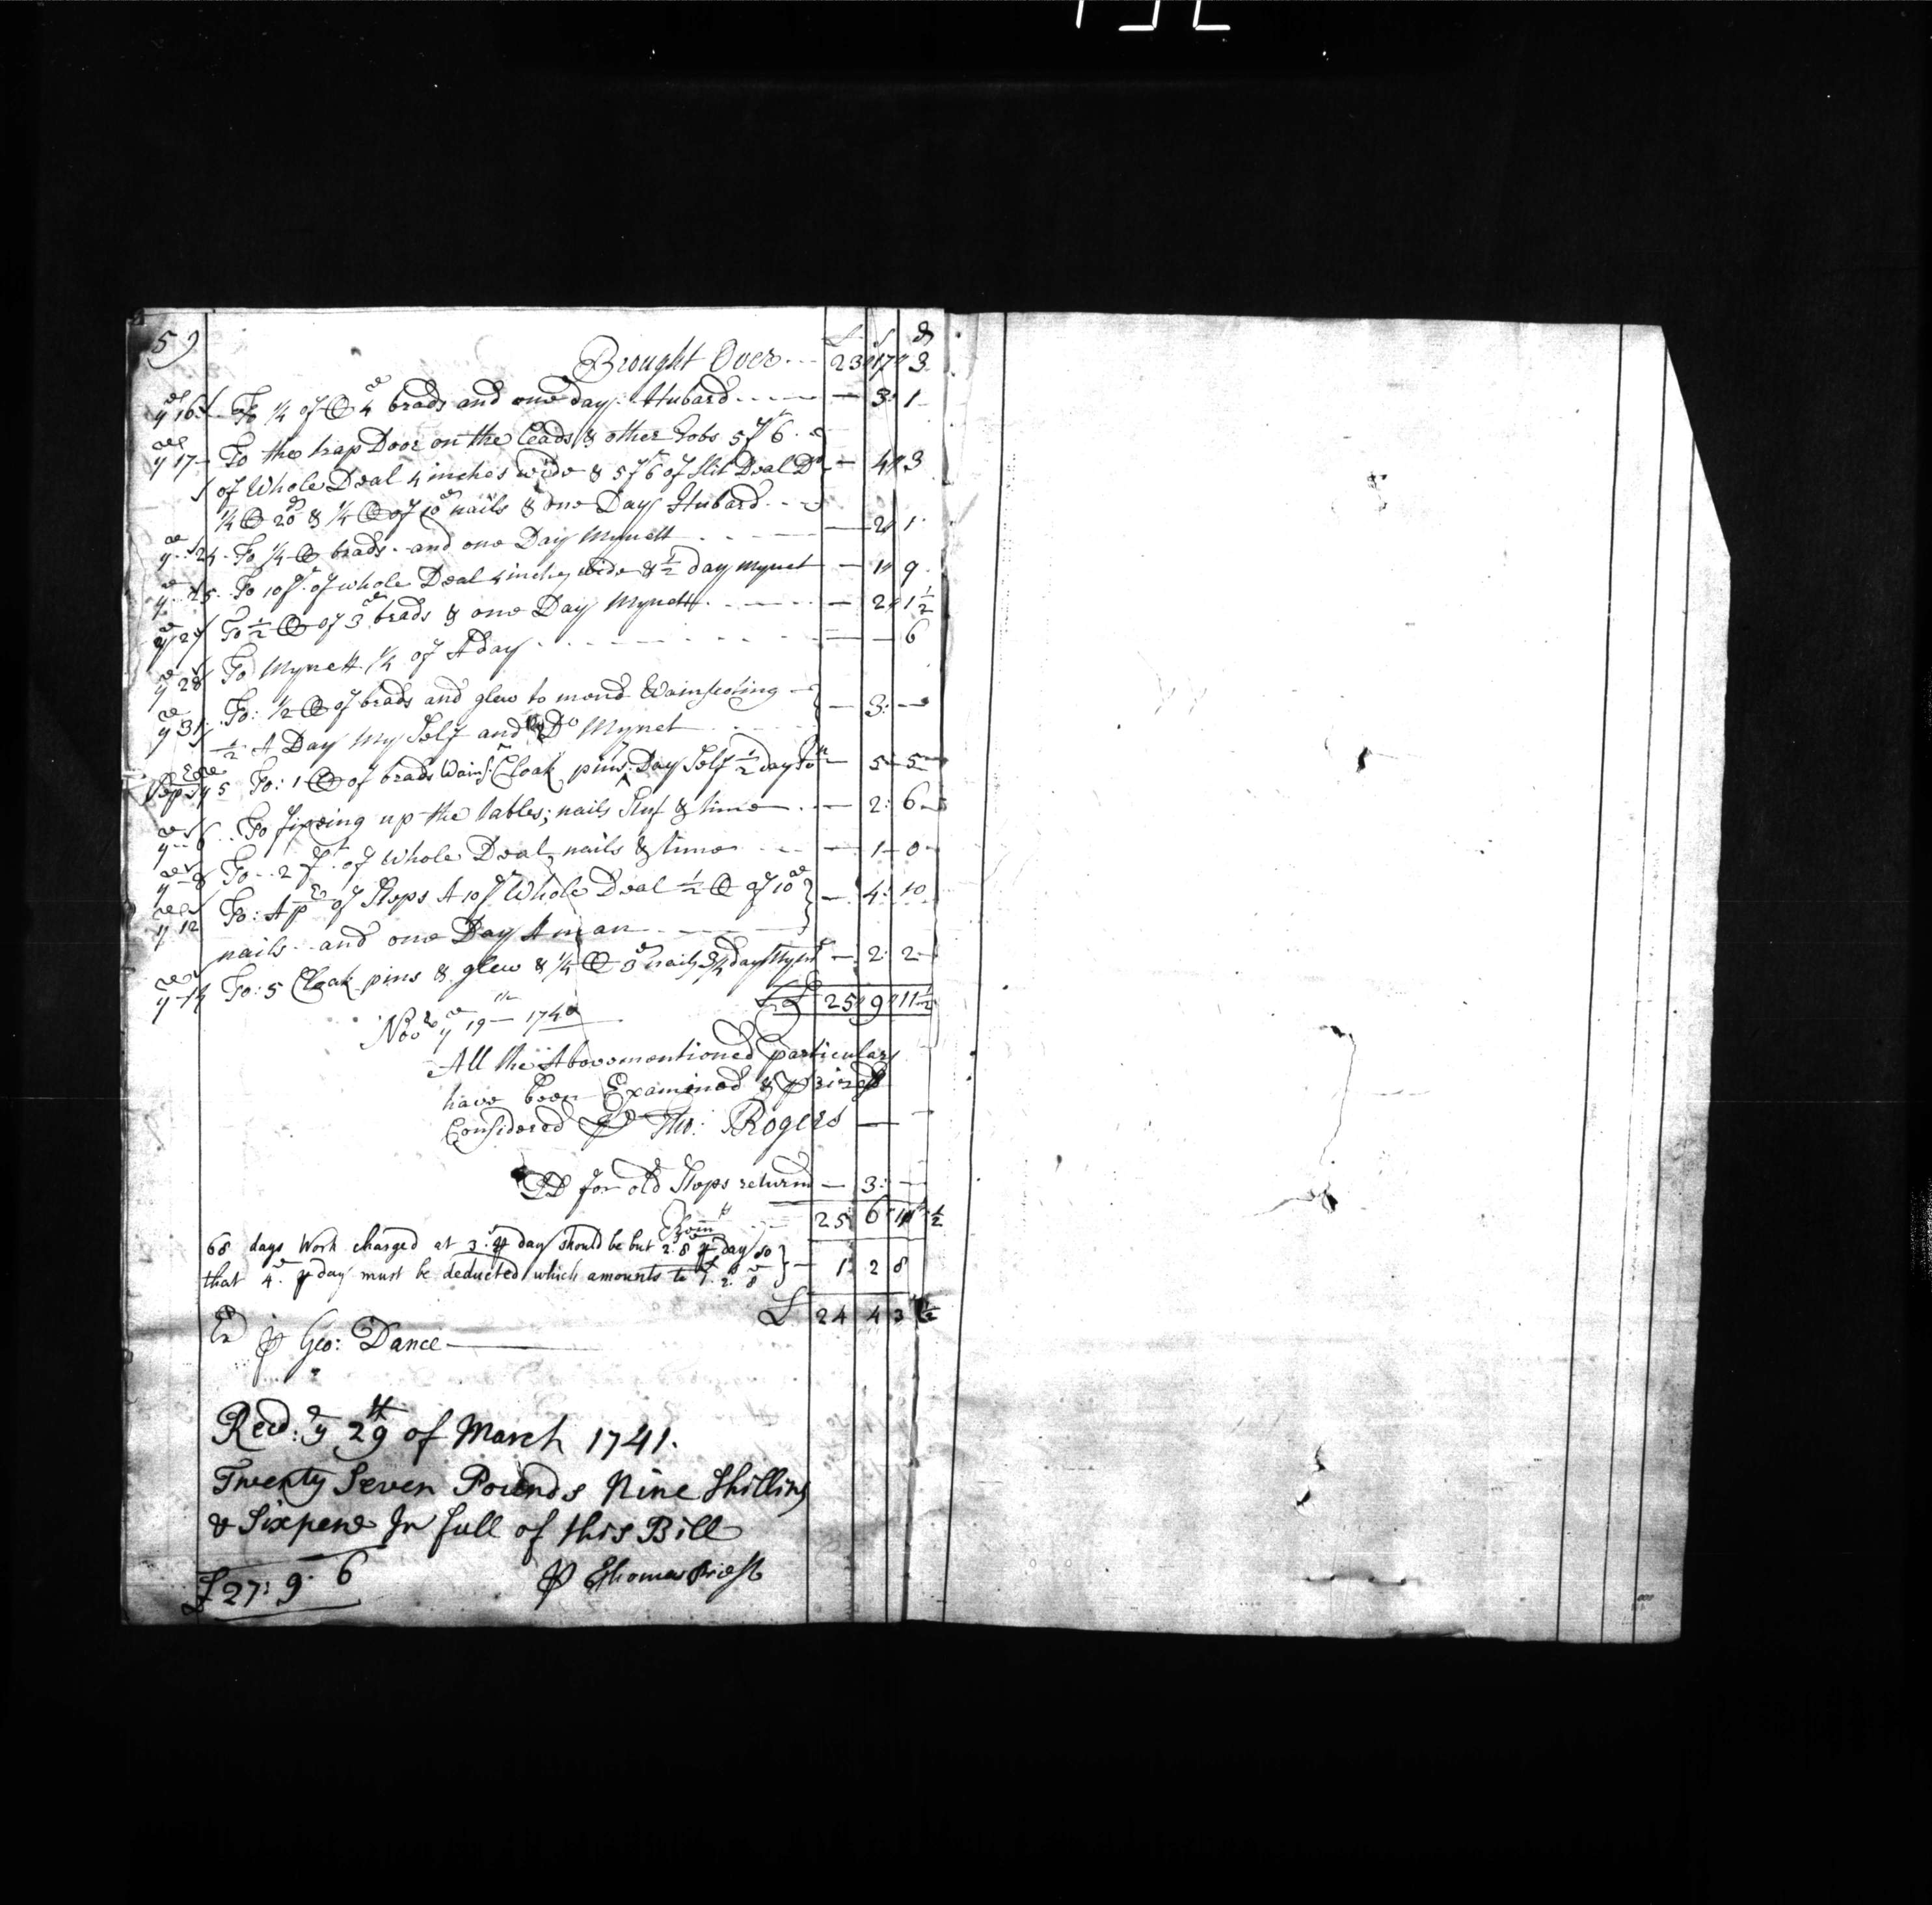 5)
£ s d
Brought Over - - 23 " 17 " 3
ye 16 To 1/4 of C 4d brads and one day Hubard - - - - 3 : 1
ye 17 To the trap Door on the Leads & other Jobs 5 ft 6
of Whole Deal 4 inches wide & 5 ft 6 of Slit Deal Do - 4 " 3
1/4 C 20d & 1/4 C of 10d nails & one Day Hubard - -
ye 24 To 1/4 C brads and one Day Mynett - - - 2 " 1
ye 25 To 10 ft of whole Deal 4 inches wide & 1/2 day Mynet - 1 " 9
ye 27 To 1/2 C of 3d brads & one Day Mynett - - - 2 " 1 1/2
ye 28 To Mynett 1/4 of A day - - - - - 6
ye 31 To: 1/2 C of brads and glew to mend Wainscoting
1/2 A Day My Self and Do Mynet - 3 : -
Sepr ye 5 To: 1 C of brads Wains: Cloak pins Day Self 1/2 day - 5 - 5
ye 6 To fixeing up the tables; nails Stuf & time - - 2 : 6
ye 8 To - 2 ft of Whole Deal, nails & time - - - 1 - 0
ye 12 To: A pr of Steps A 10 ft Whole Deal 1/2 C of 10d - 4 : 10
nails and one Day A man - - -
ye 14 To: 5 Cloak pins & glew & 1/4 C 3d nails 3/4 day Mynt - 2 : 2
£ 25 " 9 " 11 1/2
Novbr ye 19th 1740
All the Abovementioned particulars
have been Examined & prizes
Considered P Tho: Rogers
for old Steps returnd - 3 : -
25 6 11 1/2
68 days Work charged at 3s P day should be but 2s 8d P day so
that 4d P day must be deducted which amounts to 1 . 2 . 8 - 1 2 8
£ 24 4 3 1/2
Ed P Geo: Dance
Recd: ye 29th of March 1741.
Twenty Seven Pounds Nine Shillins
& Sixpene In full of this Bill
£27 : 9 : 6 P Thomas Priest